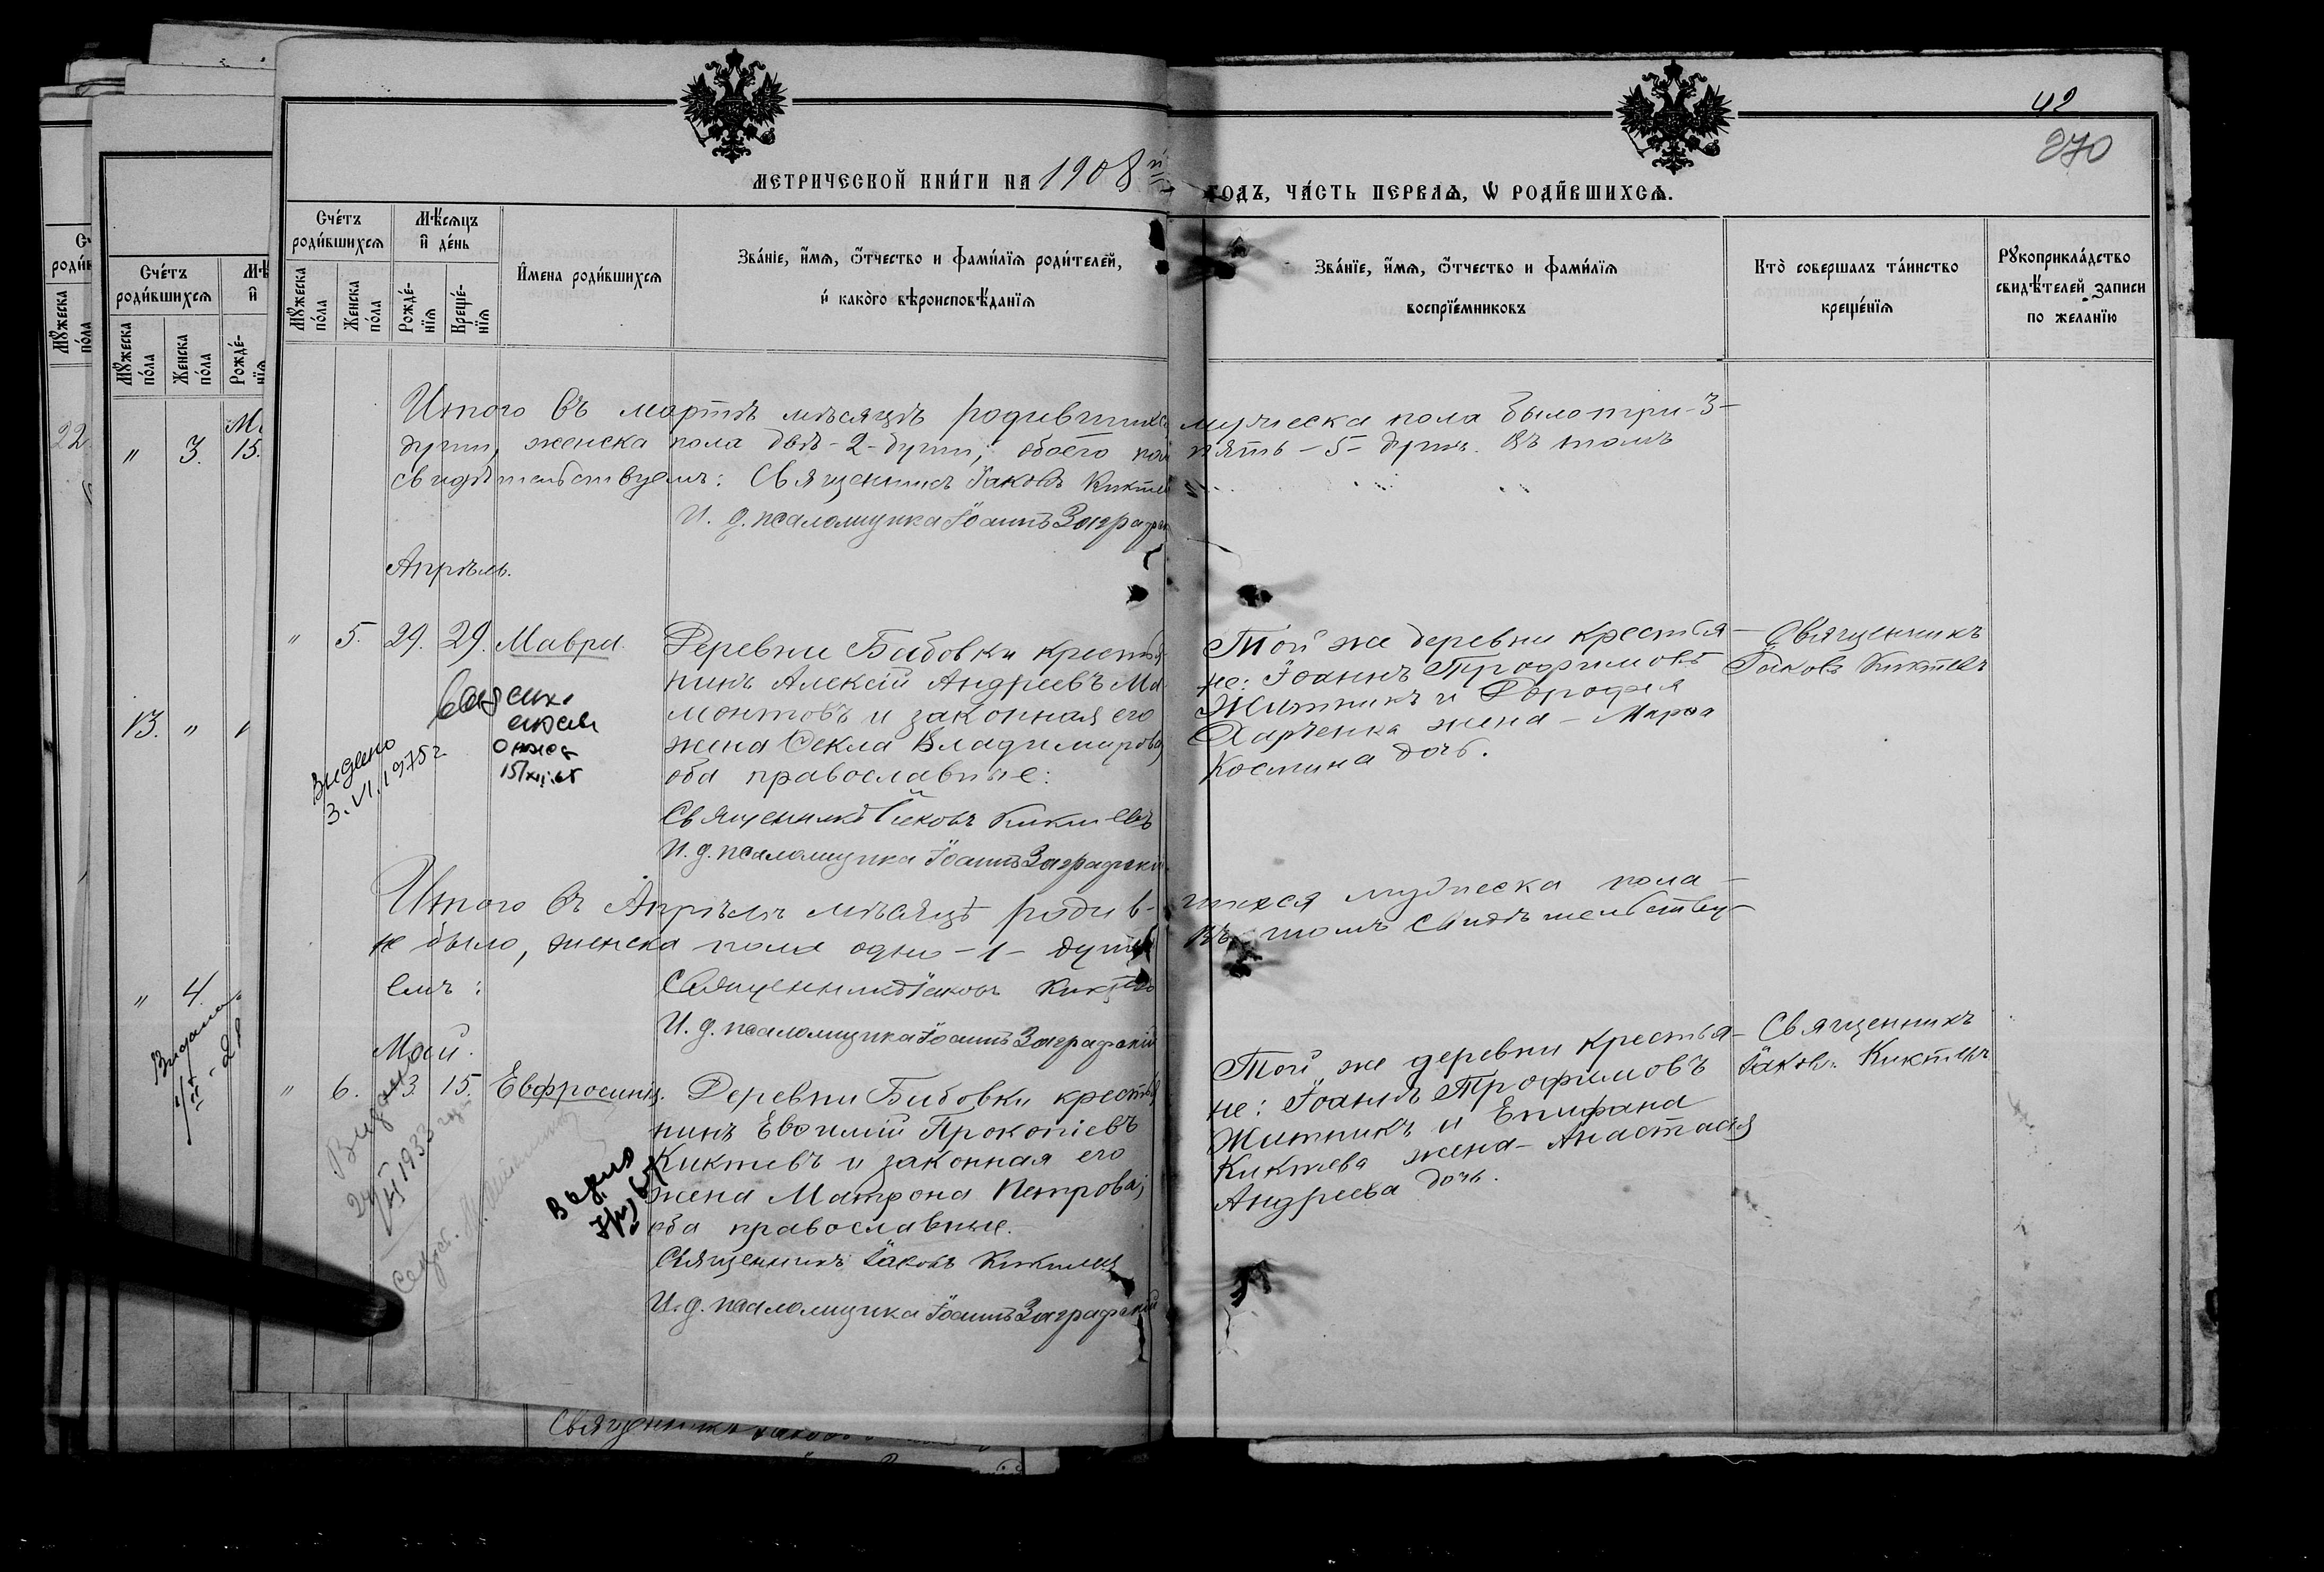 42
270
МЕТРИЧЕСКОЙ КНИ́ГИ НА 1908й
ГОДЪ, ЧА́СТЬ ПЕРВАѦ, Ѡ РОДИ́ВШИХСѦ.
Сче́тъ роди́вшихсѧ
Мѣ́сѧцъ и҆ де́нь
И҆мена роди́вшихсѧ
Зва́нїе, и҆́мѧ, ѻ҆́тчество и фами́лїѧ роди́телей,
и҆ како́гѡ вѣроисповѣ́данїѧ
Зва́нїе, и҆́мѧ, ѻ҆́тчество и фами́лїѧ
воспрїе́мниковъ
Кто̀ совершалъ та́инство
креще́нїѧ
Рꙋкоприкла́дство
свидѣ́телей записи
по жела́нїю
Мꙋ́жеска по́ла
Же́нска по́ла
Рожде́нїѧ
Креще́нїѧ
Итого въ мартѣ мѣсяцѣ родившихся мужеска пола было три -3-
души, женска пола двѣ -2- души, обоего пола пять -5- душъ. Въ томъ
свидѣтельствуемъ: Священникъ Іаковъ Киктевъ
И. д. псаломщика Іоаннъ Заграфскій
Апрѣль.
" 5. 29. 29. Мавра.
Деревни Бабовки крестья-
нинъ Алексій Андреевъ Ма-
монтовъ и законная его
жена Секла Владимирова,
оба православные:
Священникъ Іаковъ Киктевъ
И. д. псаломщика Іоаннъ Заграфскій
Той же деревни крестья-
не: Іоаннъ Трофимовъ
Житникъ и Дорофея
Харченка жена - Марѳа
Космина дочь.
Священникъ
Іаковъ Киктевъ
15/XII.65
Видено
3.VI.1975г
Итого въ Апрѣлѣ мѣсяцѣ родив-шихся мужеска пола -
не было, женска пола одна -1- душа Въ томъ свидѣтельству-
емъ: Священникъ Іаковъ Киктевъ
И. д. псаломщика Іоаннъ Заграфскій
Май.
" 6. 13. 15. Евфросинія.
Деревни Бабовки крестья-
нинъ Евѳимій Прокопіевъ
Киктевъ и законная его
жена Матрона Петрова;
оба православные.
Священникъ Іаковъ Киктевъ
И. д. псаломщика Іоаннъ Заграфскій
Той же деревни крестья-
не: Іоаннъ Трофимовъ
Житникъ и Епифана
Киктева жена - Анастасія
Андреева дочь.
Священникъ
Іаковъ Киктевъ
Видано
1933
Сче́тъ роди́вшихсѧ
Мꙋ́жеска по́ла
Же́нска по́ла
Рожде́нїѧ
" 3. 15.
13. "
" 4.
22.